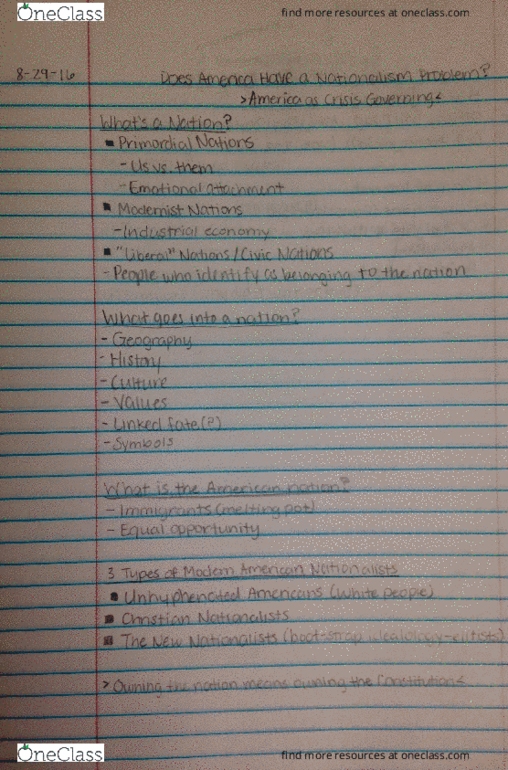 OneClass
find more resources at oneclass.com
8-29-16 Does America Have a Nationalism Problem?
>America as Crisis Governing<
What's a Nation?
▪ Primordial Nations
- Us vs. them
- Emotional attachment
▪ Modernist Nations
- Industrial economy
▪ "Liberal" Nations/Civic Nations
- People who identify as belonging to the nation
What goes into a nation?
- Geography
- History
- Culture
- Values
- Linked fate(?)
- Symbols
What is the American nation?
- Immigrants (melting pot)
- Equal opportunity
3 Types of Modern American Nationalists
▪ Unhyphenated Americans (white people)
▪ Christian Nationalists
▪ The New Nationalists (boot-strap
> Owning the nation means owning the Constitution<
OneClass
find more resources at oneclass.com